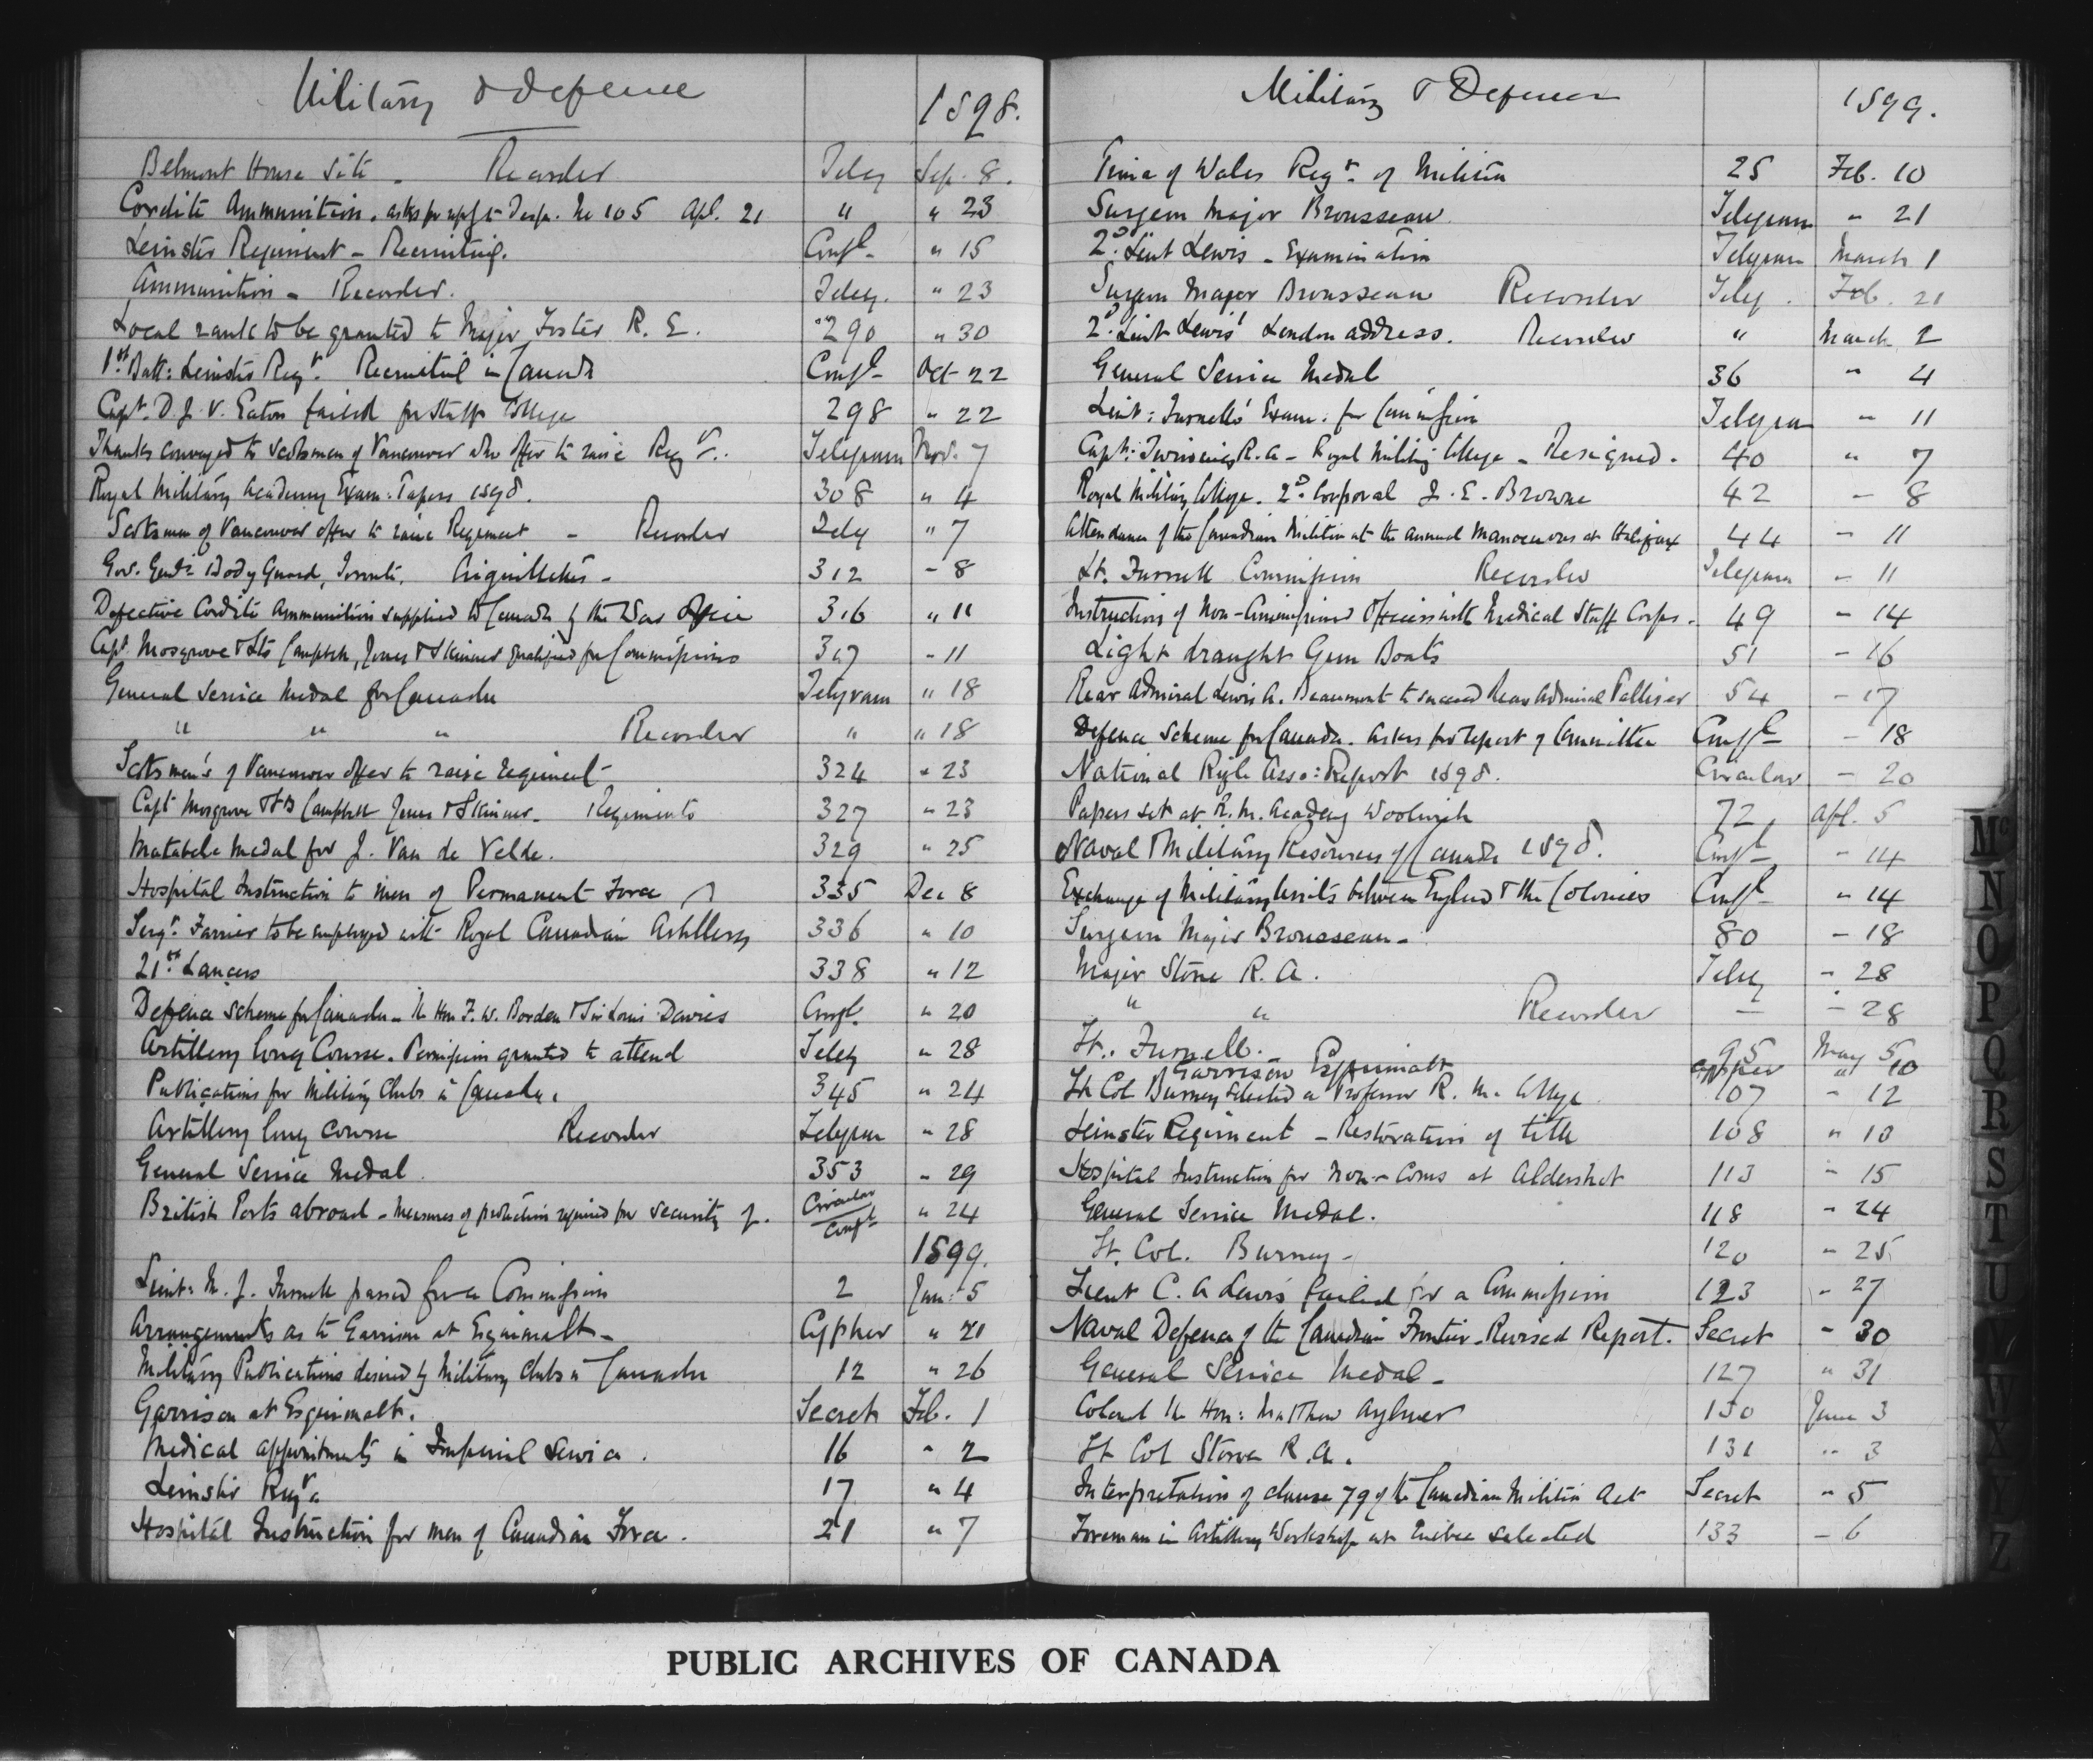 Military & Defence 1898.
Belmont House Site - Recorder Teleg Sep. 8.
Cordite Ammunition. asks for reply to Desp. No 105 Apl. 21 " " 23
Leinster Regiment - Recruiting. Confl - " 15
Ammunition - Recorder. Teleg. " 23
Local rank to be granted to Major Foster R. E. 290 " 30
1st Batt: Leinster Regt. Recruiting in Canada Confl - Oct 22
Capt. D. J. V. Eaton failed for Staff College 298 " 22
Thanks conveyed to Scotsmen of Vancouver who offer to raise Regt. Telegram Nov. 7
Royal Military Academy Exam: Papers 1898. 308 " 4
Scotsmen of Vancouver offer to raise Regiment - Recorder Teleg " 7
Gov. Genl's Body Guard, Toronto. Aiguillettes - 312 - 8
Defective Cordite Ammunition supplied to Canada by the War Office 316 " 11
Capt. Mosgrove & Lts Campbell, Jones & Skinner qualified for Commissions 317 - 11
General Service Medal for Canada Telegram " 18
" " " Recorder " " 18
Scotsmen's of Vancouver offer to raise regiment - 324 " 23
Capt Mosgrove & Lts Campbell Jones & Skinner - Regiments 327 " 23
Matabele Medal for J. Van de Velde. 329 " 25
Hospital Instruction to men of Permanent Force 335 Dec 8
Sergt. Farrier to be employed with Royal Canadian Artillery 336 " 10
21st Lancers 338 " 12
Defence Scheme for Canada - The Hon F. W. Borden & Sir Louis Davies Confl. " 20
Artillery long Course. Permission granted to attend Teleg " 28
Publications for Military Clubs in Canada. 345 " 24
Artillery long course Recorder Telegram " 28
General Service Medal 353 - 29
British Ports abroad - Measures of protection required for security of. Circular Confl " 24
1899.
Lieut: M. J. Furnell passed for a Commission 2 Jan: 5
Arrangements as to Garrison at Esquimalt - Cypher " 21
Military Publications desired by Military Clubs in Canada 12 " 26
Garrison at Esquimalt. Secret Feb. 1
Medical appointments in Imperial Service. 16 " 2
Leinster Regt. 17 " 4
Hospital Instruction for men of Canadian Force. 21 " 7
Military & Defence 1899.
Prince of Wales Regt. of Militia 25 Feb. 10
Surgeon Major Brousseau Telegram " 21
2d. Lieut Lewis - Examination Telegram March 1
Surgeon Major Brousseau Recorder Teleg. Feb. 21
2d. Lieut Lewis' London address. Recorder " March 2
General Service Medal 36 " 4
Lieut: Furnell's Exam: for Commission Telegram " 11
Capt: Twining R.A - Royal Military College - Resigned. 40 " 7
Royal Military College. 2d. Corporal J. E. Browne 42 - 8
Attendance of the Canadian Militia at the annual Manoeuvres at Halifax 44 - 11
Lt. Furnell Commission Recorder Telegram - 11
Instruction of Non-Commissioned Officers with Medical Staff Corps. 49 - 14
Light draught Gun Boats 51 - 16
Rear Admiral Lewis A. Beaumont to succeed Rear Admiral Palliser 54 - 17
Defence Scheme for Canada. asks for report of Committee Confl - 18
National Rifle Asso: Report 1898. Circular - 20
Papers set at R. M. Academy Woolwich 72 Apl. 5
Naval & Military Resources of Canada 1898. Confl - 14
Exchange of Military Units between England & the Colonies Confl - " 14
Surgeon Major Brousseau - 80 - 18
Major Stone R. A. Teleg - 28
" " Recorder - - 28
Lt. Furnell. 95 May 5
Garrison Esquimalt cypher " 10
Lt Col Burney selected as Professor R. M. College 107 - 12
Leinster Regiment - Restoration of title 108 " 13
Hospital Instruction for Non-Coms at Aldershot 113 - 15
General Service Medal. 118 - 24
Lt. Col. Burney - 120 - 25
Lieut C. A Lewis failed for a Commission 123 - 27
Naval Defence of the Canadian Frontier. Revised Report. Secret - 30
General Service Medal - 127 " 31
Colonel the Hon: Matthew Aylmer 130 June 3
Lt Col Stone R. A. 131 " 3
Interpretation of clause 79 of the Canadian Militia Act Secret - 5
Foreman in Artillery Workshop at Quebec selected 133 - 6
Mc
N
O
P
Q
R
S
T
U
W
X
Z
PUBLIC ARCHIVES OF CANADA